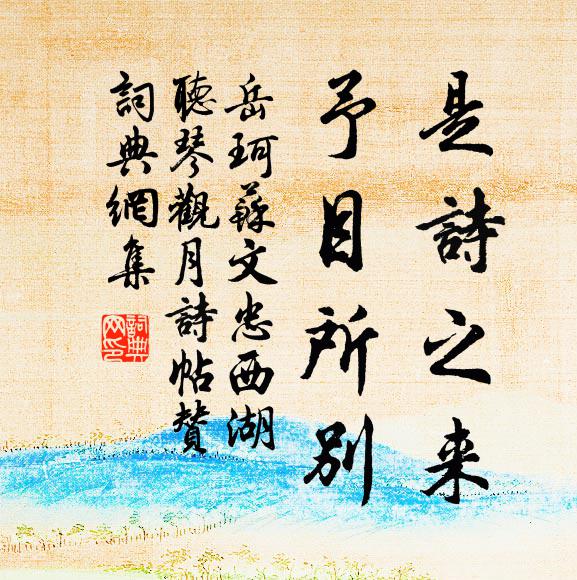 是詩之来
予目所別
岳珂蘇文忠西湖
聽琴觀月詩帖贊
詞典網集
詞典
网印